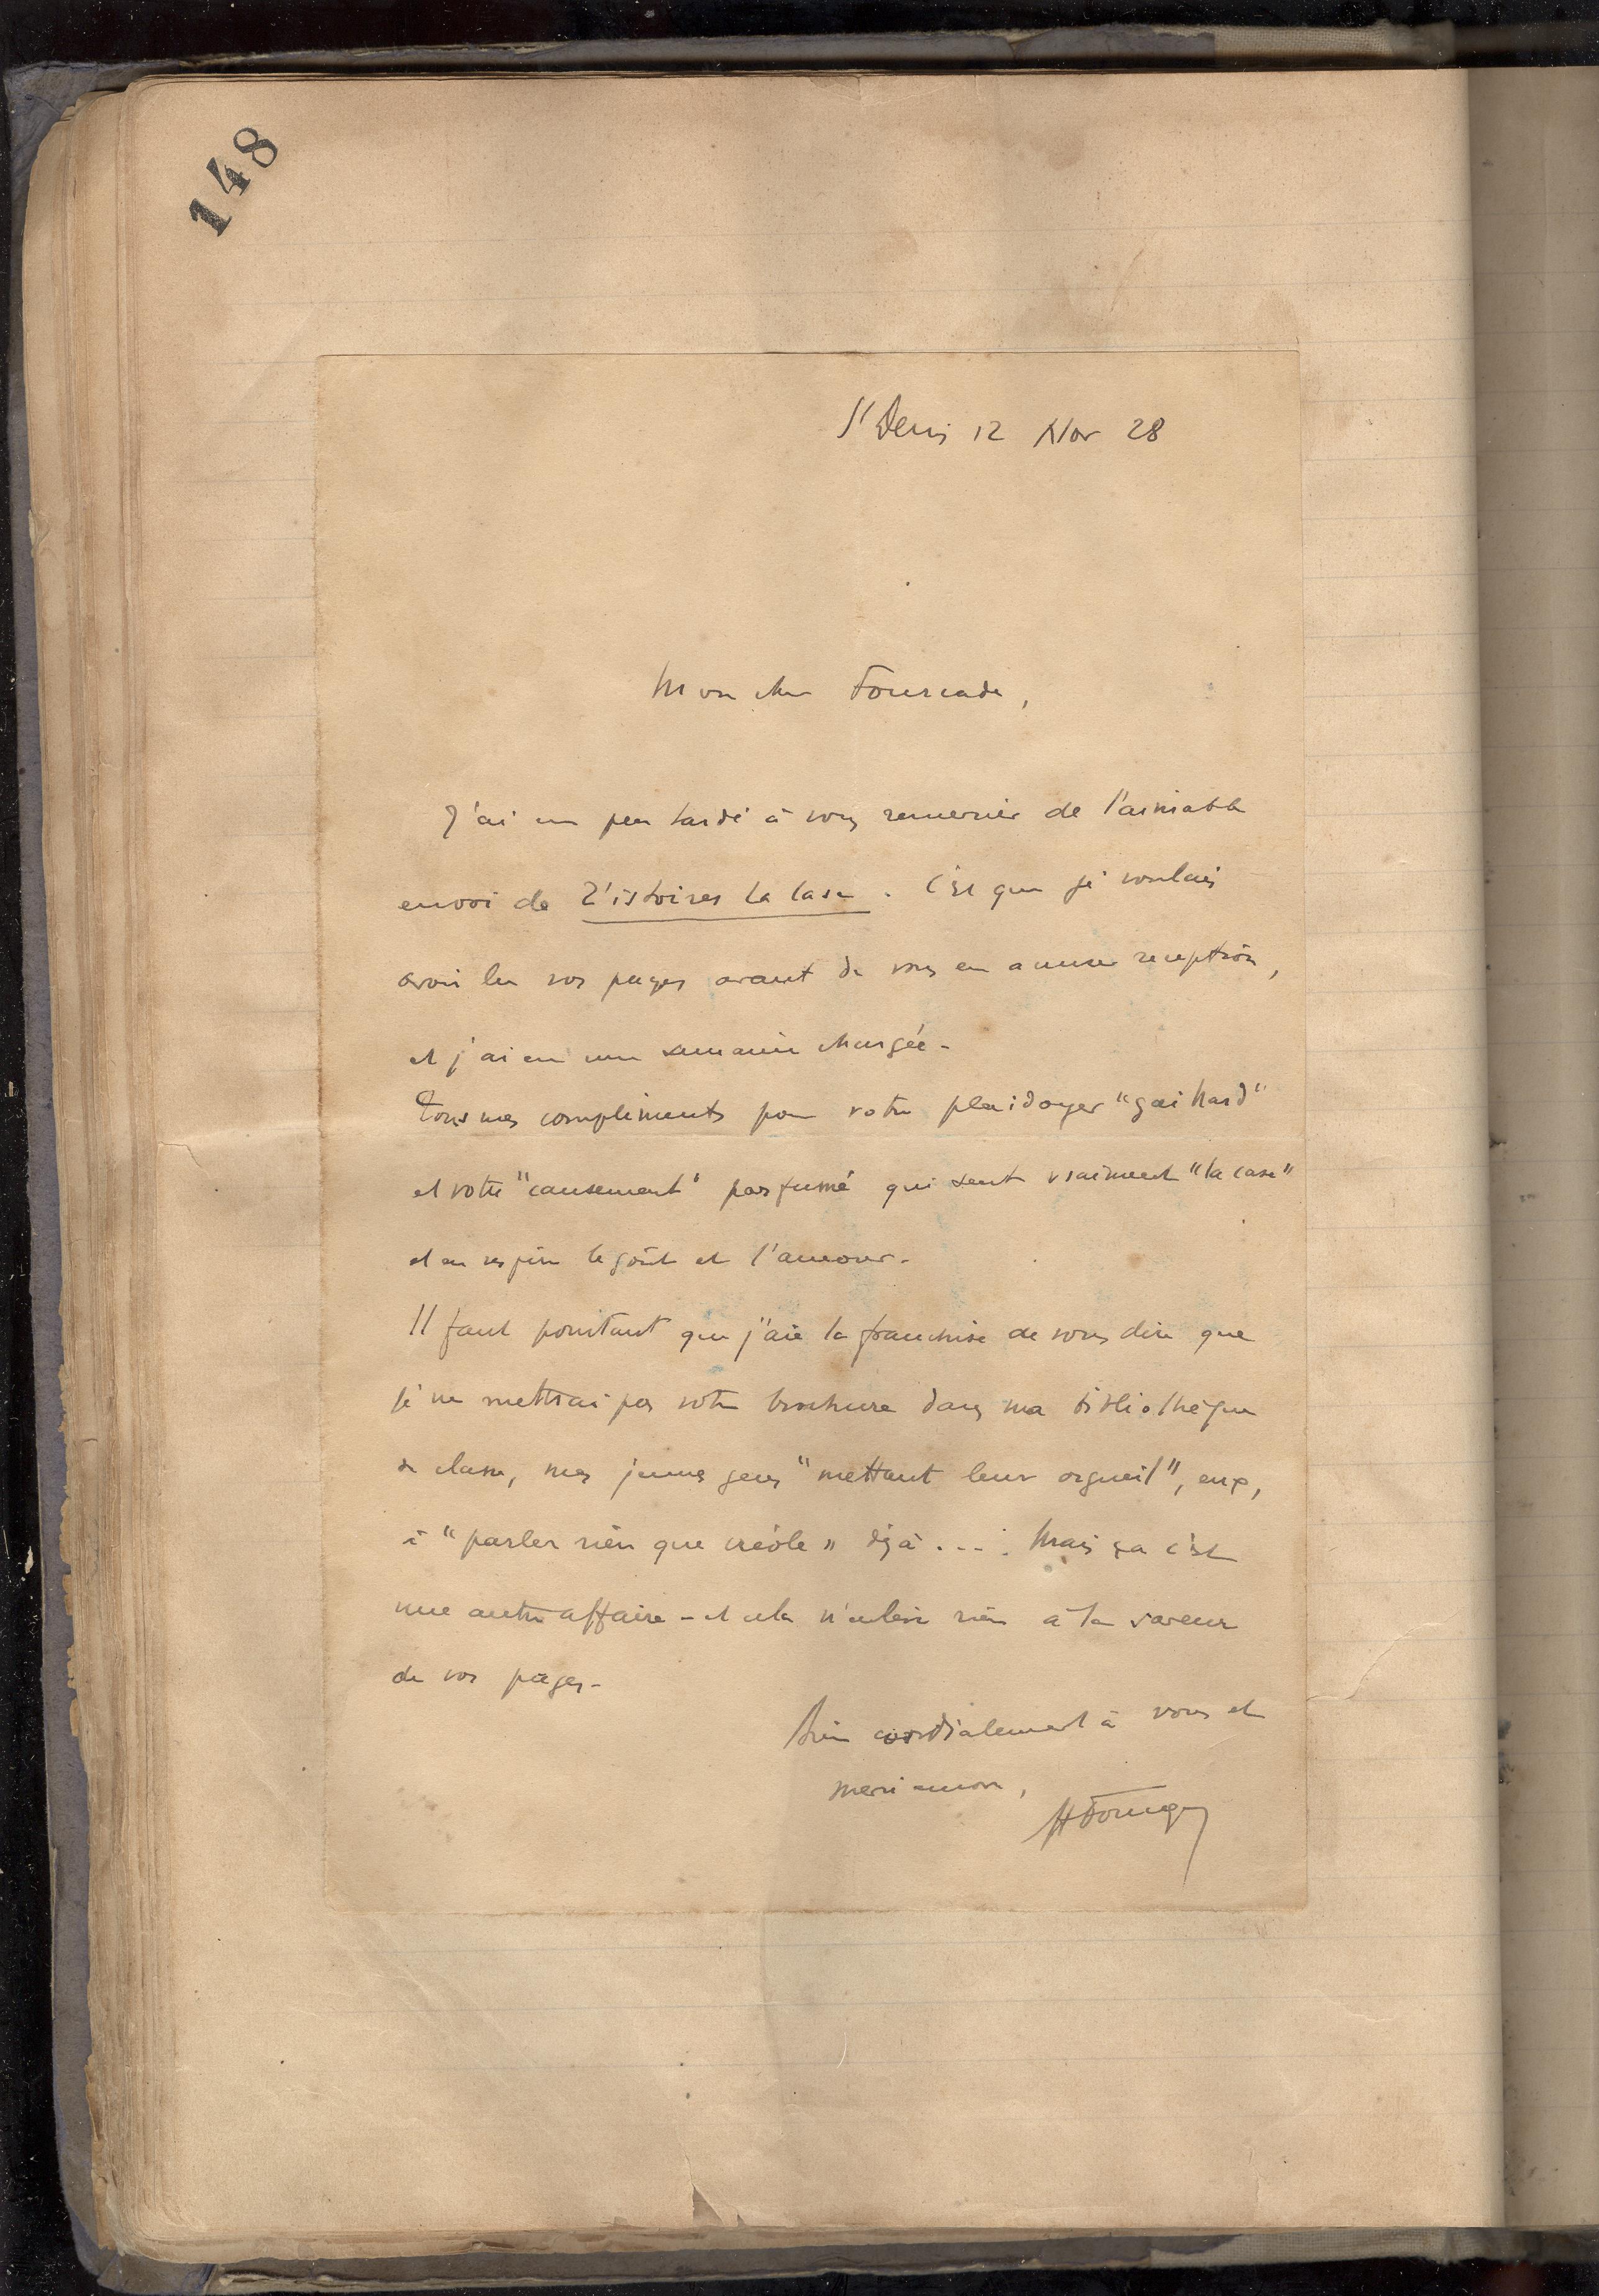 148
St Denis 12 Nov 28
Mon cher Fourcade,
J'ai un peu tardé à vous remercier de l'aimable
envoi de Z'istoires la case. C'est que je voulais
avoir lu vos pages avant de vous en accuser reception,
et j'ai eu une semaine chargée -
Tous mes compliments pour votre plaidoyer "gaihard"
et votre "causement" parfumé qui sent vraiment "la case"
et en respire le goût et l'amour -
Il faut pourtant que j'aie la franchise de vous dire que
je ne mettrai pas votre brochure dans ma bibliothèque
de classe, mes jeunes gens "mettant leur orgueil", eux,
à "parler rien que créole" déjà .... Mais ça c'est
une autre affaire - et cela n'enlève rien à la saveur
de vos pages -
Bien cordialement à vous et
merci encore,